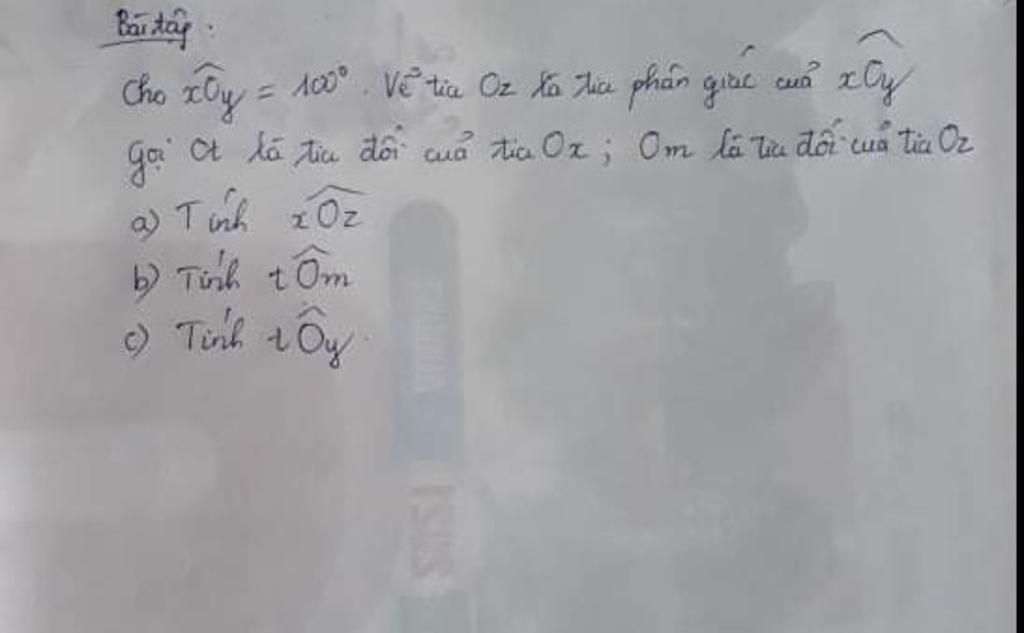 Bài tập.
Cho xÔy = 100°. Vẽ tia Oz là tia phân giác của xÔy
Gọi Ot là tia đối của tia Ox; Om là tia đối của tia Oz
a) Tính xÔz
b) Tính tÔm
c) Tính tÔy.